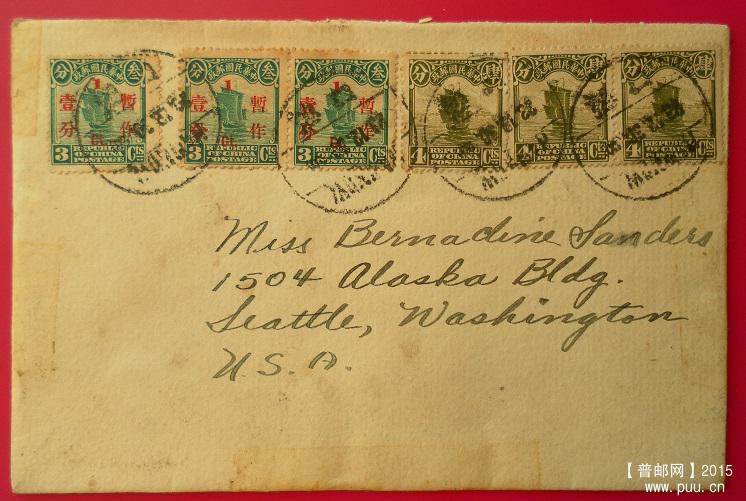 分 中華民國郵政 叁
1
暫作
壹分
Cent
3 REPUBLIC OF CHINA POSTAGE Cts
分 中華民國郵政 叁
1
暫作
壹分
3 REPUBLIC OF CHINA POSTAGE Cts
分 中華民國郵政 叁
1
暫作
壹分
3 REPUBLIC OF CHINA POSTAGE Cts
分 中華民國郵政 肆
4 REPUBLIC OF CHINA POSTAGE Cts
分 中華民國郵政 肆
4 REPUBLIC OF CHINA POSTAGE Cts
分 中華民國郵政 肆
4 REPUBLIC OF CHINA POSTAGE Cts
Miss Bernadine Sanders
1504 Alaska Bldg.
Seattle, Washington
U. S. A.
【普邮网】2015
www.puu.cn